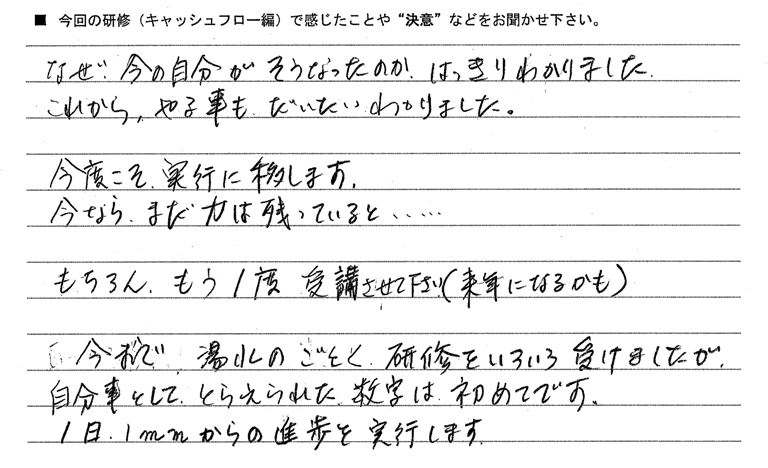 ■ 今回の研修（キャッシュフロー編）で感じたことや“決意”などをお聞かせ下さい。
なぜ、今の自分がそうなったのか、はっきりわかりました。
これから、やる事も、だいたいわかりました。
今度こそ、実行に移します。
今なら、まだ力は残っていると……
もちろん、もう1度受講させて下さい（来年になるかも）
今まで、湯水のごとく、研修をいろいろ受けましたが、
自分事として、とらえられた数字は、初めてです。
1日、1mmからの進歩を実行します。